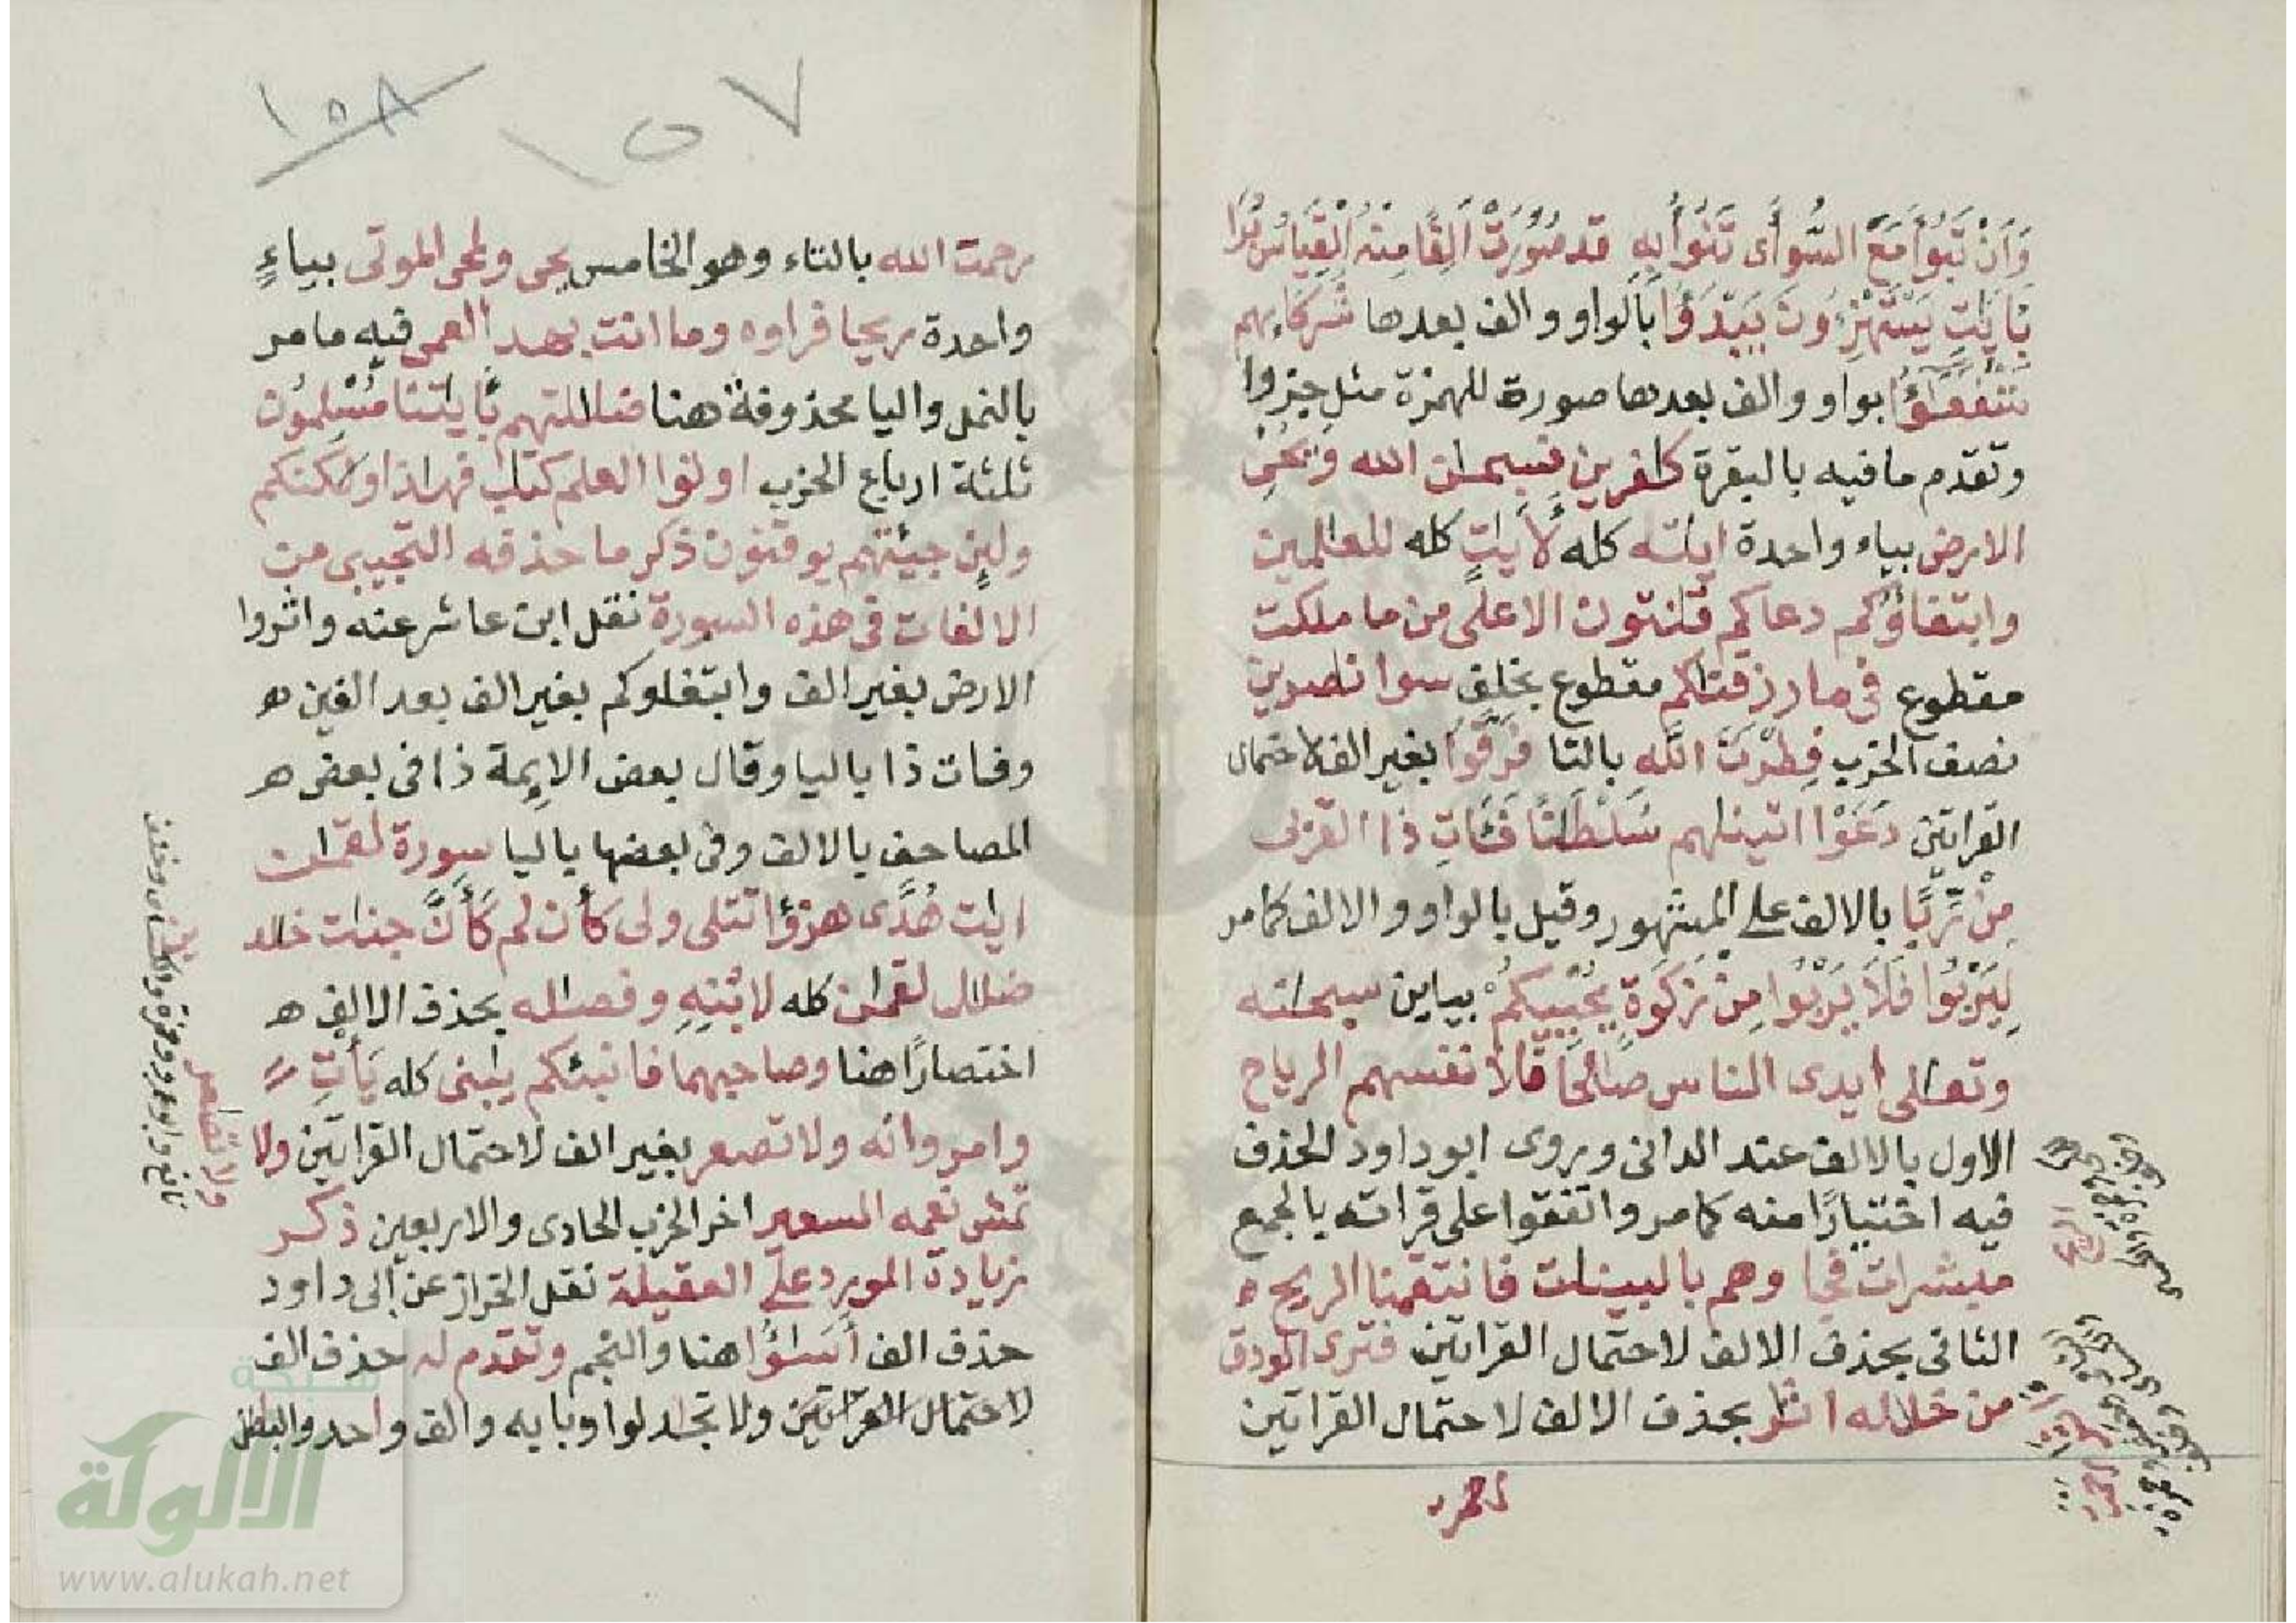 وَأَنْ تَبُوأَ مَعَ السُّوأَى تَنُوأُ بِهِ قد صُوِّرَتْ أَلِفًا مِنْهُ الْقِيَاسُ بَرَا
بَايَٰتِ يَسْتَهْزِءُونَ يَبْدَؤُا بالواو والف بعدها شركايهم
شُفَعَٰٓؤُا بواو والف بعدها صورة للهمزة مثل جزوا
وتقدم ما فيه بالبقرة كٰفرين فسبحٰن الله وَيُحْىِ
الارض بياء واحدة ايٰته كله لَأَيَٰتٍ كله للعٰلمين
وابتغاؤكم دعاكم قٰنتون الاعلى من ما ملكت
مقطوع فى ما رزقنٰكم مقطوع بخلف سوا نٰصرين
نصف الحزب فِطْرَتَ الله بالتا فَرَّقُوا بغير الف لاحتمال
القراتين دَعَوْا اتينٰهم سُلْطَٰنًا فَـَٔاتِ ذا القربى
مِنْ رِّبًا بالالف على المشهور وقيل بالواو والالف كما مر
لِيَرْبُوا فَلَا يَرْبُوا مِنْ زَكَوٰةٍ يُحْيِيكُمْ بياين سبحٰنه
وتعٰلى ايدى الناس صٰلحًا فلأنفسهم الرياح
الاول بالالف عند الدانى وروى ابو داود الحذف
فيه اختيارًا منه كما مر واتفقوا على قراته بالجمع
مبشرات فجاوهم بالبينٰت فانتقمنا الريح ه
الثانى بحذف الالف لاحتمال القراتين فترى الودق
من خلاله اثٰر بحذف الالف لاحتمال القراتين
رحمت الله بالتاء وهو الخامس يحى ولمحى الموتى بياءٍ
واحدة ريحا فراوه وما انت بهد العمى فيه ما مر
بالنمل واليا محذوفة هنا ضلٰلتهم بَٔايٰتنا مُسْلِمُون
ثلثة ارباع الحزب اوتوا العلم كتٰب فهٰذا ولٰكنكم
ولين جيتهم يوقنون ذكر ما حذفه التجيبى من
الالفات فى هذه السورة نقل ابن عاشر عنه واثروا
الارض بغير الف وابتغاوكم بغير الف بعد الغين ه
وفات ذا باليا وقال بعض الايمة ذا فى بعض ه
المصاحف بالالف وفى بعضها باليا سورة لقمٰن
ايٰت هُدًى هزؤا تتلى ولى كأن لم كَأَنَّ جنٰت خلد
ضلٰل لقمٰن كله لابْنِهِ وفصٰله بحذف الالف ه
اختصارًا هنا وصاحبهما فانبئكم يٰبنى كله يَأْتِ
وامر وانه ولا تصعر بغير الف لاحتمال القراتين ولا
تمش نعمه السعير اخر الحزب الحادى والاربعين ذكر
زيادة المورد على العقيلة نقل الخراز عن ابى داود
حذف الف أَسَٰٓـُٔوا هنا والنجم وتقدم له حذف الف
لاحتمال القراتين ولا تجٰدلوا وبابه والف واحد والبٰطل